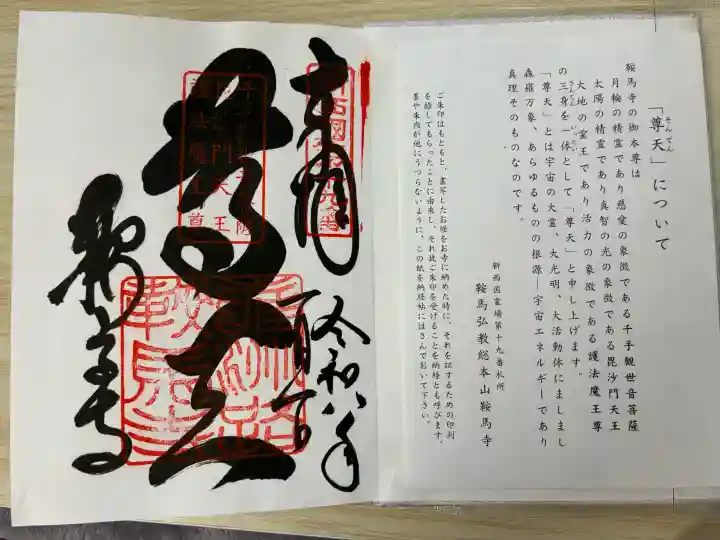 「尊天」について
そんてん
鞍馬寺の御本尊は
月輪の精霊であり慈愛の象徴である千手観世音菩薩
太陽の精霊であり真智の光の象徴である毘沙門天王
大地の霊王であり活力の象徴である護法魔王尊
の三身を一体として「尊天」と申し上げます。
「尊天」とは宇宙の大霊、大光明、大活動体にましまし
森羅万象、あらゆるものの根源―宇宙エネルギーであり
真理そのものなのです。
新西国霊場第十九番札所
鞍馬弘教総本山鞍馬寺
ご朱印はもともと、書写したお経をお寺に納めた時に、それを証するための印判
を捺してもらったことに由来し、それ故ご朱印を受けることを納経とも呼びます。
墨や朱肉が他にうつらないように、この紙を納経帖にはさんでおいて下さい。
奉拝
令和八年
尊天
鞍馬寺